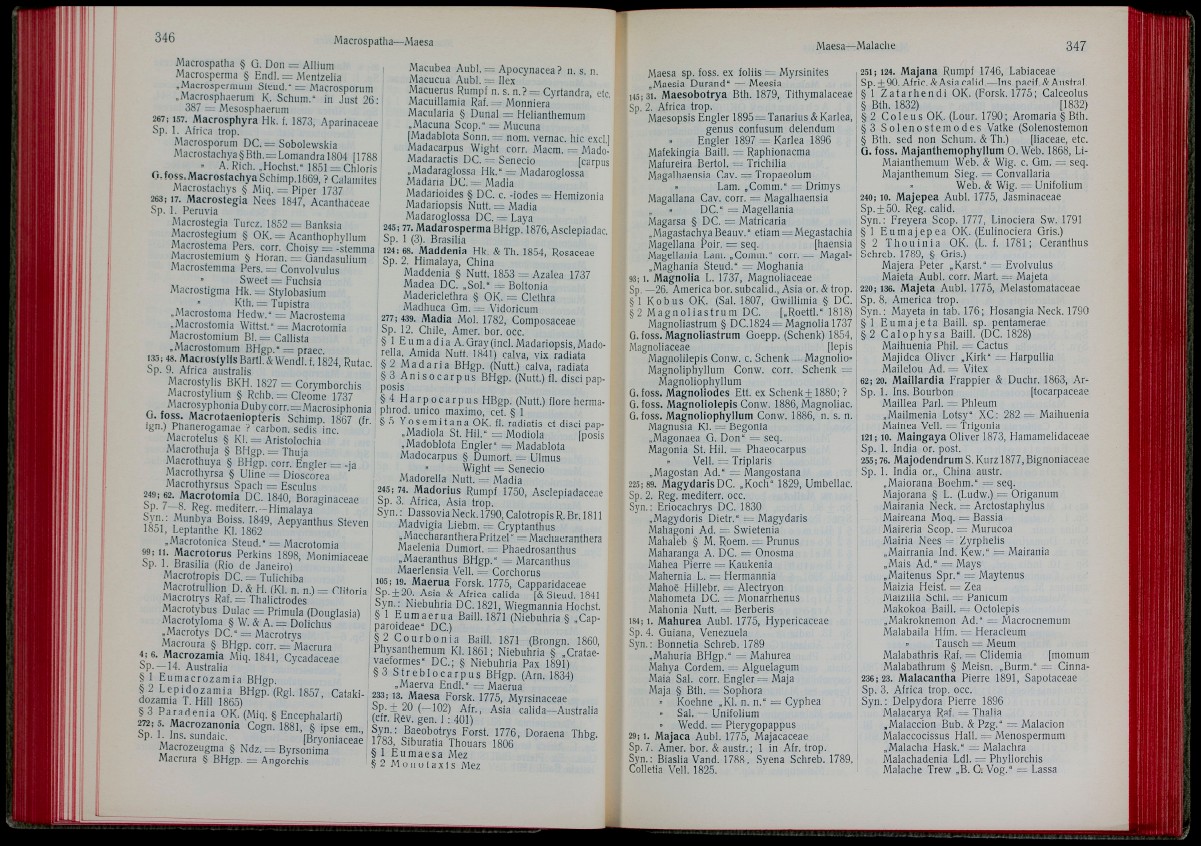 346
Macrospatha—Maesa
Macrospatha § G. Don = Allium
Macrosperma § Endl. = Mentzelia
„Macrospermum Steud.“ = Macrosporum
„Macrosphaerum K. Schum.“ in Just 26:
387 = Mesosphaerum
267; 157. Macrosphyra Hk. f. 1873, Aparinaceae
Sp. 1. Africa trop.
Macrosporum DC. = Sobolewskia
Macrostachya § Bth. = Lomandra 1804 [1788
„ A. Rich. „Hochst.“ 1851 = Chloris
G. foss. Macrostachya Schimp. 1869, ? Calamites
Macrostachys § Miq. = Piper 1737
263; 17. Macrostegia Nees 1847, Acanthaceae
Sp. 1. Peruvia
Macrostegia Turcz. 1852 = Banksia
Macrostegium § OK. = Acanthophyllum
Macrostema Pers. corr. Choisy = -stemma
Macrostemium § Horan. = Gandasulium
Macrostemma Pers. = Convolvulus
„ Sweet = Fuchsia
Macrostigma Hk. = Stylobasium
„ Kth. = Tupistra
„Macrostoma Hedw.“ = Macrostema
„Macrostomia Wittst.“ = Macrotomia
Macrostomium Bl. = Callista
„Macrostomum BHgp.“ = praec.
135; 48. Macrostylis Bartl. & Wendl. f. 1824, Rutac.
Sp. 9. Africa australis
Macrostylis BKH. 1827 = Corymborchis
Macrostylium § Rchb. = Cleome 1737
Macrosyphonia Duby corr. = Macrosiphonia
G. foss. Macrotaeniopteris Schimp. 1867 (fr.
ign.) Phanerogamae ? carbon. sedis inc.
Macrotelus § Kl. = Aristolochia
Macrothuja § BHgp. = Thuja
Macrothuya § BHgp. corr. Engler = -ja
Macrothyrsa § Uline = Dioscorea
Macrothyrsus Spach = Esculus
249; 62. Macrotomia DC. 1840, Boraginaceae
Sp. 7—8. Reg. mediterr.—Himalaya
Syn.: Munbya Boiss. 1849, Aepyanthus Steven
1851, Leptanthe Kl. 1862
„Macrotonica Steud.“ = Macrotomia
99; 11. Macrotorus Perkins 1898, Monimiaceae
Sp. 1. Brasilia (Rio de Janeiro)
Macrotropis DC. = Tulichiba
Macrotrullion D. & H. (Kl. n. n.) = Clitoria
Macrotrys Raf. = Thalictrodes
Macrotybus Dulac = Primula (Douglasia)
Macrotyloma § W. & A. = Dolichus
„Macrotys DC.“ = Macrotrys
Macroura § BHgp. corr. = Macrura
4; 6. Macrozamia Miq. 1841, Cycadaceae
Sp. —14. Australia
§ 1 Eumacrozamia BHgp.
§ 2 Lepidozamia BHgp. (Rgl. 1857, Cataki-
dozamia T. Hill 1865)
§ 3 Paradenia OK. (Miq. § Encephalarti)
272; 5. Macrozanonia Cogn. 1881, § ipse em.,
Sp. 1. Ins. sundaic. [Bryoniaceae
Macrozeugma § Ndz. = Byrsonima
Macrura § BHgp. = Angorchis
Macubea Aubl. = Apocynacea ? n. s. n.
Macucua Aubl. = Ilex
Macuerus Rumpf n. s. n. ? = Cyrtandra, etc.
Macuillamia Raf. = Monniera
Macularia § Dunal = Helianthemum
„Macuna Scop.“ = Mucuna
[Madablota Sonn. = nom. vernac. hic excl.]
Madacarpus Wight corr. Macm. = Mado-
Madaractis DC. = Senecio [carpus
„Madaraglossa Hk.“ = Madaroglossa
Madaria DC. = Madia
Madarioides § DC. c. -iodes = Hemizonia
Madariopsis Nutt. = Madia
Madaroglossa DC. = Laya
245; 77. Madarosperma BHgp. 1876, Asclepiadac.
Sp. 1 (3). Brasilia
124; 68. Maddenia Hk. & Th. 1854, Rosaceae
Sp. 2. Himalaya, China
Maddenia § Nutt. 1853 = Azalea 1737
Madea DC. „Sol.“ = Boltonia
Madericlethra § OK. = Clethra
Madhuca Gm. = Vidoricum
277; 439. Madia Mol. 1782, Composaceae
Sp. 12. Chile, Amer. bor. occ.
§ 1 Eumadia A. Gray (incl. Madariopsis, Mado-
rella, Amida Nutt. 1841) calva, vix radiata
§ 2 Madaria BHgp. (Nutt.) calva, radiata
§ 3 Anisocarpus BHgp. (Nutt.) fl. disci pap-
posis
§ 4 Harpocarpus HBgp. (Nutt.) flore herma-
phrod. unico maximo, cet. § 1
§ 5 Yosemitana OK. fl. radiatis et disci pap-
„Madiola St. Hil.“ = Modiola [posis
„Madoblota Engler“ = Madablota
Madocarpus § Dumort. = Ulmus
„ Wight = Senecio
Madorella Nutt. = Madia
245; 74. Madorius Rumpf 1750, Asclepiadaceae
Sp. 3. Africa, Asia trop.
Syn.: Dassovia Neck. 1790, Calotropis R. Br. 1811
Madvigia Liebm. = Cryptanthus
„Maecharanthera Pritzel“ = Machaeranthera
Maelenia Dumort. = Phaedrosanthus
„Maeranthus BHgp.“ = Marcanthus
Maerlensia Vell. = Corchorus
105; 19. Maerua Forsk. 1775, Capparidaceae
Sp. ± 20. Asia & Africa calida [& Steud. 1841
Syn.: Niebuhria DC. 1821, Wiegmannia Hochst.
§ 1 Eumaerua Baill. 1871 (Niebuhria § „Cap-
paroideae“ DC.)
§ 2 Courbonia Baill. 1871 (Brongn. 1860,
Physanthemum Kl. 1861; Niebuhria § „Cratae-
vaeformes“ DC.; § Niebuhria Pax 1891)
§ 3 Streblocarpus BHgp. (Arn. 1834)
„Maerva Endl.“ = Maerua
233; 13. Maesa Forsk. 1775, Myrsinaceae
Sp. ± 20 (—102) Afr., Asia calida—Australia
(cfr. Rev. gen. I : 401)
Syn.: Baeobotrys Forst. 1776, Doraena Thbg.
1783, Siburatia Thouars 1806
§ 1 Eumaesa Mez
§ 2 Monotaxis Mez
Maesa—Malache
347
Maesa sp. foss. ex foliis = Myrsinites
„Maesia Durand“ = Meesia
145; 31. Maesobotrya Bth. 1879, Tithymalaceae
Sp. 2. Africa trop.
Maesopsis Engler 1895 = Tanarius & Karlea,
genus confusum delendum
„ Engler 1897 = Karlea 1896
Mafekingia Baill. = Raphionacma
Mafureira Bertol. = Trichilia
Magalhaensia Cav. = Tropaeolum
„ Lam. „Comm.“ = Drimys
Magallana Cav. corr. = Magalhaensia
„ „DC.“ = Magellania
Magarsa § DC. = Matricaria
„Magastachya Beauv.“ etiam = Megastachia
Magellana Poir. = seq. [haensia
Magellania Lam. „Comm.“ corr. = Magal-
„Maghania Steud.“ = Moghania
93; 1. Magnolia L. 1737, Magnoliaceae
Sp. —26. America bor. subcalid., Asia or. & trop.
§ 1 Kobus OK. (Sal. 1807, Gwillimia § DC.
§ 2 Magnoliastrum DC. [„Roettl.“ 1818)
Magnoliastrum § DC. 1824 = Magnolia 1737
G. foss. Magnoliastrum Goepp. (Schenk) 1854,
Magnoliaceae [lepis
Magnolilepis Conw. c. Schenk = Magnolio-
Magnoliphyllum Conw. corr. Schenk =
Magnoliophyllum
G. foss. Magnoliodes Ett. ex Schenk ± 1880; ?
G. foss. Magnoliolepis Conw. 1886, Magnoliac.
G. foss. Magnoliophyllum Conw. 1886, n. s. n.
Magnusia Kl. = Begonia
„Magonaea G. Don“ = seq.
Magonia St. Hil. = Phaeocarpus
„ Vell. = Triplaris
„Magostan Ad.“ = Mangostana
225; 89. Magydaris DC. „Koch“ 1829, Umbellac.
Sp. 2. Reg. mediterr. occ.
Syn.: Eriocachrys DC. 1830
„Magydoris Dietr.“ = Magydaris
Mahagoni Ad. = Swietenia
Mahaleb § M. Roem. = Prunus
Maharanga A. DC. = Onosma
Mahea Pierre = Kaukenia
Mahernia L. = Hermannia
Mahoë Hillebr. = Alectryon
Mahometa DC. = Monarrhenus
Mahonia Nutt. = Berberis
184; 1. Mahurea Aubl. 1775, Hypericaceae
Sp. 4. Guiana, Venezuela
Syn.: Bonnetia Schreb. 1789
„Mahuria BHgp.“ = Mahurea
Mahya Cordem. = Alguelagum
Maia Sal. corr. Engler = Maja
Maja § Bth. = Sophora
„ Koehne „Kl. n. n.“ = Cyphea
„ Sal. = Unifolium
„ Wedd. = Pterygopappus
29; 1. Majaca Aubl. 1775, Majacaceae
Sp. 7. Amer. bor. & austr.; 1 in Afr. trop.
Syn.: Biaslia Vand. 1788, Syena Schreb. 1789,
Colletia Vell. 1825.
251; 124. Majana Rumpf 1746, Labiaceae
Sp. ± 90. Afric. & Asia calid.—Ins. pacif. & Austral.
§ 1 Zatarhendi OK. (Forsk. 1775; Calceolus
§ Bth. 1832) [1832)
§ 2 Coleus OK. (Lour. 1790; Aromaria § Bth.
§ 3 Solenostemodes Vatke (Solenostemon
§ Bth. sed non Schum. & Th.) [liaceae, etc.
G. foss. Majanthemophyllum O. Web. 1868, Li-
Maianthemum Web. & Wig. c. Gm. = seq.
Majanthemum Sieg. = Convallaria
„ Web. & Wig. = Unifolium
240; 10. Majepea Aubl. 1775, Jasminaceae
Sp. ± 50. Reg. calid.
Syn.: Freyera Scop. 1777, Linociera Sw. 1791
§ 1 Eumajepea OK. (Eulinociera Gris.)
§ 2 Thouinia OK. (L. f. 1781; Ceranthus
Schreb. 1789, § Gris.)
Majera Peter „Karst.“ = Evolvulus
Maieta Aubl. corr. Mart. = Majeta
220; 136. Majeta Aubl. 1775, Melastomataceae
Sp. 8. America trop.
Syn.: Mayeta in tab. 176; Hosangia Neck. 1790
§ 1 Eumajeta Baill. sp. pentamerae
§ 2 Calophysa Baill. (DC. 1828)
Maihuenia Phil. = Cactus
Majidea Oliver „Kirk“ = Harpullia
Mailelou Ad. = Vitex
62; 20. Maillardia Frappier & Duchr. 1863, Ar-
Sp. 1. Ins. Bourbon [tocarpaceae
Maillea Parl. = Phleum
„Mailmenia Lotsy“ XC: 282 = Maihuenia
Mainea Vell. = Trigonia
121; 10. Maingaya Oliver 1873, Hamamelidaceae
Sp. 1. India or. post.
255; 76. Majodendrum S. Kurz 1877, Bignoniaceae
Sp. 1. India or., China austr.
„Maiorana Boehm.“ = seq.
Majorana § L. (Ludw.) = Origanum
Mairania Neck. = Arctostaphylus
Maireana Moq. = Bassia
Maireria Scop. = Murucoa
Mairia Nees = Zyrphelis
„Mairrania Ind. Kew.“ = Mairania
„Mais Ad.“ = Mays
„Maitenus Spr.“ = Maytenus
Maizia Heist. = Zea
Maizilla Schl. = Panicum
Makokoa Baill. = Octolepis
„Makroknemon Ad.“ = Macrocnemum
Malabaila Hfm. = Heracleum
„ Tausch = Meum
Malabathris Raf. = Clidemia [momum
Malabathrum § Meisn. „Burm.“ = Cinna-
236; 23. Malacantha Pierre 1891, Sapotaceae
Sp. 3. Africa trop. occ.
Syn.: Delpydora Pierre 1896
Malacarya Raf. = Thalia
„Malaccion Bub. & Pzg.“ = Malacion
Malaccocissus Hall. = Menospermum
„Malacha Hask.“ = Malachra
Malachadenia Ldl. = Phyllorchis
Malache Trew „B. Ci Vog.“ = Lassa